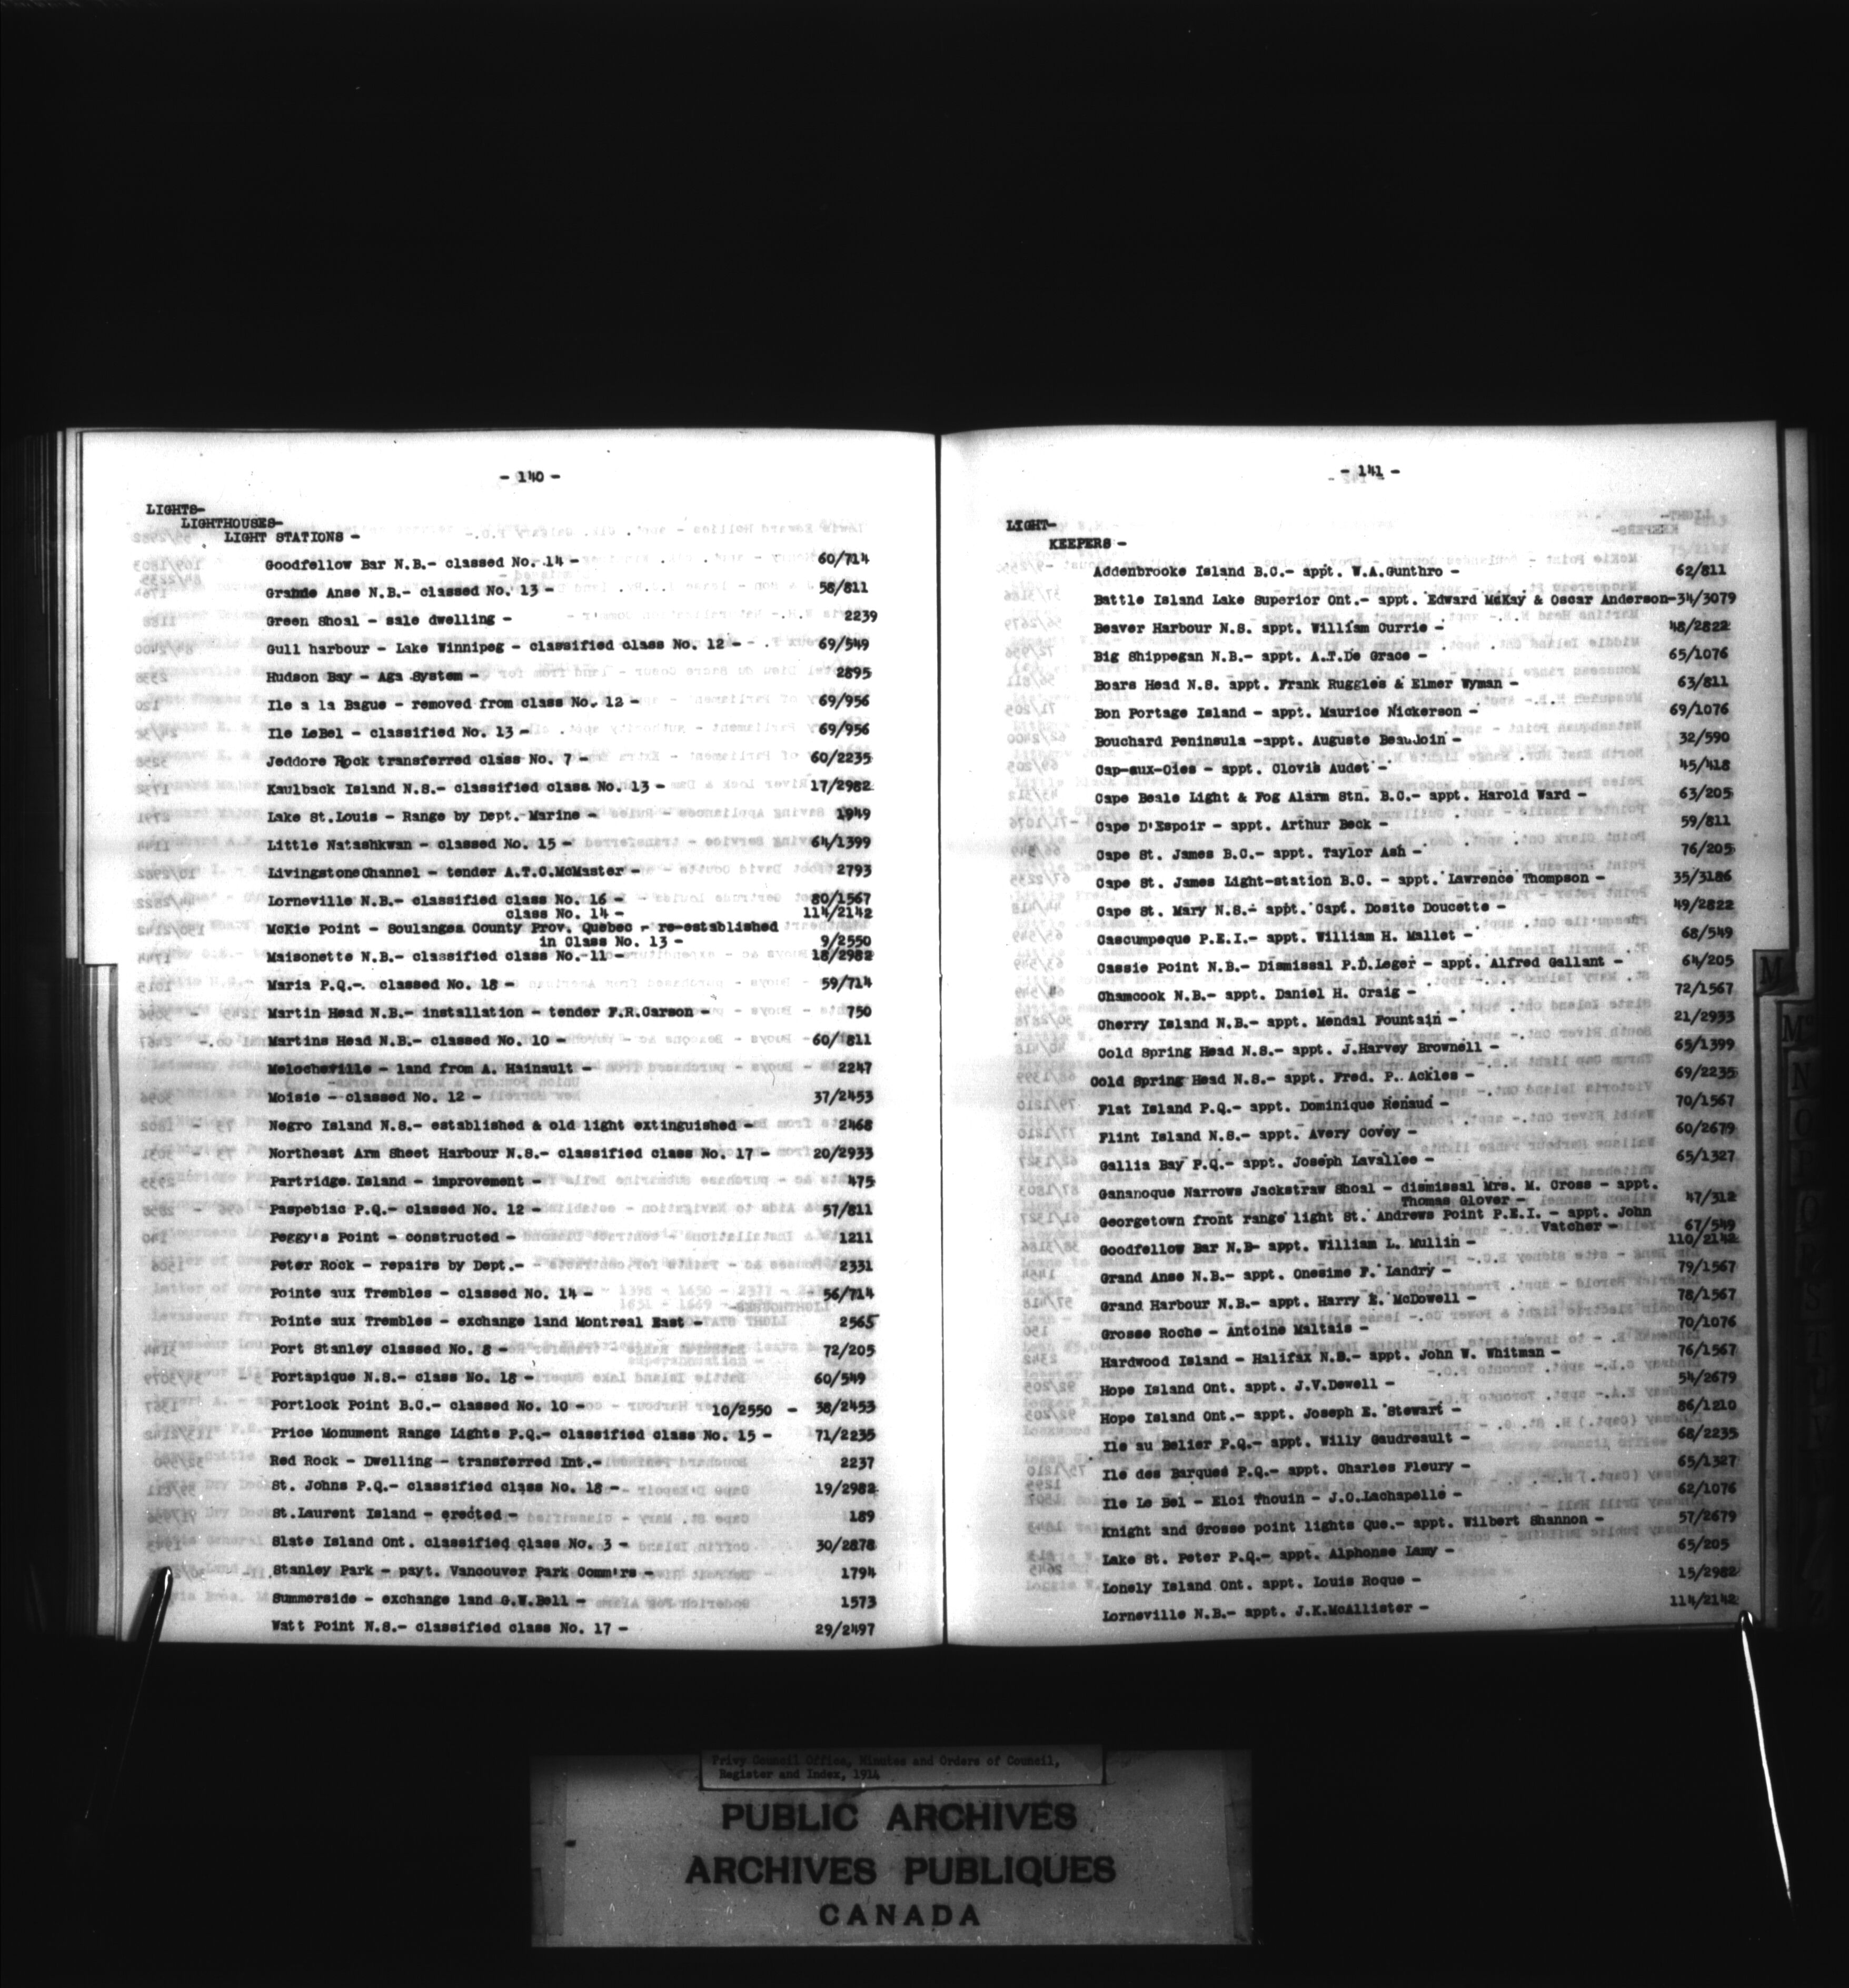 - 140 -
LIGHTS-
LIGHTHOUSES-
LIGHT STATIONS -
Goodfellow Bar N.B.- classed No. 14 - 60/714
Grande Anse N.B.- classed No. 13 - 58/811
Green Shoal - sale dwelling - 2239
Gull harbour - Lake Winnipeg - classified class No. 12 - 69/549
Hudson Bay - Aga System - 2895
Ile a la Bague - removed from class No. 12 - 69/956
Ile LeBel - classified No. 13 - 69/956
Jeddore Rock transferred class No. 7 - 60/2235
Kaulback Island N.S.- classified class No. 13 - 17/2982
Lake St.Louis - Range by Dept. Marine - 1949
Little Natashkwan - classed No. 15 - 64/1399
LivingstoneChannel - tender A.T.C.McMaster - 2793
Lorneville N.B.- classified class No. 16 - 80/1567
class No. 14 - 114/2142
McKie Point - Soulanges County Prov. Quebec - re-established
in Class No. 13 - 9/2550
Maisonette N.B.- classified class No. 11 - 18/2982
Maria P.Q.-. classed No. 18 - 59/714
Martin Head N.B.- installation - tender F.R.Carson - 750
Martins Head N.B.- classed No. 10 - 60/811
Melocheville - land from A. Hainault - 2247
Moisie - classed No. 12 - 37/2453
Negro Island N.S.- established & old light extinguished - 2468
Northeast Arm Sheet Harbour N.S.- classified class No. 17 - 20/2933
Partridge Island - improvement - 475
Paspebiac P.Q.- classed No. 12 - 57/811
Peggy's Point - constructed - 1211
Peter Rock - repairs by Dept.- 2331
Pointe aux Trembles - classed No. 14 - 56/714
Pointe aux Trembles - exchange land Montreal East - 2565
Port Stanley classed No. 8 - 72/205
Portapique N.S.- class No. 18 - 60/549
Portlock Point B.C.- classed No. 10 - 10/2550 - 38/2453
Price Monument Range Lights P.Q.- classified class No. 15 - 71/2235
Red Rock - Dwelling - transferred Int.- 2237
St. Johns P.Q.- classified class No. 18 - 19/2982
St.Laurent Island - erected - 189
Slate Island Ont. classified class No. 3 - 30/2878
Stanley Park - payt. Vancouver Park Comm'rs - 1794
Summerside - exchange land G.W.Bell - 1573
Watt Point N.S.- classified class No. 17 - 29/2497
- 141 -
LIGHT-
KEEPERS -
Addenbrooke Island B.C.- appt. W.A.Gunthro - 62/811
Battle Island Lake Superior Ont.- appt. Edward McKay & Oscar Anderson-34/3079
Beaver Harbour N.S. appt. William Currie - 48/2822
Big Shippegan N.B.- appt. A.T.De Grace - 65/1076
Boars Head N.S. appt. Frank Ruggles & Elmer Wyman - 63/811
Bon Portage Island - appt. Maurice Nickerson - 69/1076
Bouchard Peninsula -appt. Auguste BeauJoin - 32/590
Cap-aux-Oies - appt. Clovis Audet - 45/418
Cape Beale Light & Fog Alarm Stn. B.C.- appt. Harold Ward - 63/205
Cape D'Espoir - appt. Arthur Beck - 59/811
Cape St. James B.C.- appt. Taylor Ash - 76/205
Cape St. James Light-station B.C. - appt. Lawrence Thompson - 35/3186
Cape St. Mary N.S.- appt. Capt. Dosite Doucette - 49/2822
Cascumpeque P.E.I.- appt. William H. Mallet - 68/549
Cassie Point N.B.- Dismissal P.D.Leger - appt. Alfred Gallant - 64/205
Chamcook N.B.- appt. Daniel H. Craig - 72/1567
Cherry Island N.B.- appt. Mendal Fountain - 21/2933
Cold Spring Head N.S.- appt. J.Harvey Brownell - 65/1399
Cold Spring Head N.S.- appt. Fred. P. Ackles - 69/2235
Flat Island P.Q.- appt. Dominique Renaud - 70/1567
Flint Island N.S.- appt. Avery Covey - 60/2679
Gallia Bay P.Q.- appt. Joseph Lavallee - 65/1327
Gananoque Narrows Jackstraw Shoal - dismissal Mrs. M. Cross - appt.
Thomas Glover - 47/312
Georgetown front range light St. Andrews Point P.E.I. - appt. John
Vatcher - 67/549
Goodfellow Bar N.B- appt. William L. Mullin - 110/2142
Grand Anse N.B.- appt. Onesime F. Landry - 79/1567
Grand Harbour N.B.- appt. Harry E. McDowell - 78/1567
Grosse Roche - Antoine Maltais - 70/1076
Hardwood Island - Halifax N.B.- appt. John W. Whitman - 76/1567
Hope Island Ont. appt. J.V.Dewell - 54/2679
Hope Island Ont.- appt. Joseph E. Stewart - 86/1210
Ile au Belier P.Q.- appt. Willy Gaudreault - 68/2235
Ile des Barques P.Q.- appt. Charles Fleury - 65/1327
Ile Le Bel - Eloi Thouin - J.O.Lachapelle - 62/1076
Knight and Grosse point lights Que.- appt. Wilbert Shannon - 57/2679
Lake St. Peter P.Q.- appt. Alphonse Lamy - 65/205
Lonely Island Ont. appt. Louis Roque - 15/2982
Lorneville N.B.- appt. J.K.McAllister - 114/2142
M
Mc
N
O
Privy Council Office, Minutes and Orders of Council,
Register and Index, 1914
PUBLIC ARCHIVES
ARCHIVES PUBLIQUES
CANADA